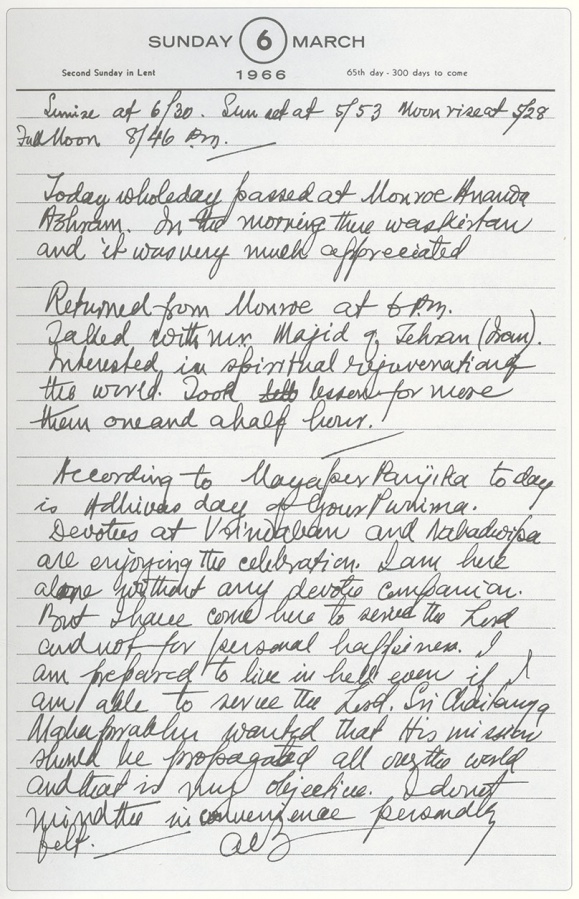 SUNDAY 6 MARCH
Second Sunday in Lent 1966 65th day - 300 days to come
Sunrise at 6/30. Sun set at 5/53 Moon rise at 5/28
Full Moon 8/46 P.m.
Today wholeday passed at Monroe Ananda
Ashram. In the morning there was kirtan
and it was very much appreciated
Returned from Monroe at 6 P.m.
Talked with mr. Majid of Tehran (Iran).
Interested in spiritual rejuvenation of
the world. Took lesson for more
them one and a half hour.
According to Mayapur Panjika to day
is Adhivas day of Gour Purnima.
Devotees at Vrindaban and Nabadwipa
are enjoying the celebration. I am here
alone without any devotee companion.
But I have come here to serve the Lord
and not for personal happiness. I
am prepared to live in hell even if I
am able to serve the Lord. Sri Chaitanya
Mahaprabhu wanted that His mission
should be propagated all over the world
and that is my objective. I do not
mind the inconvenience personally
felt.